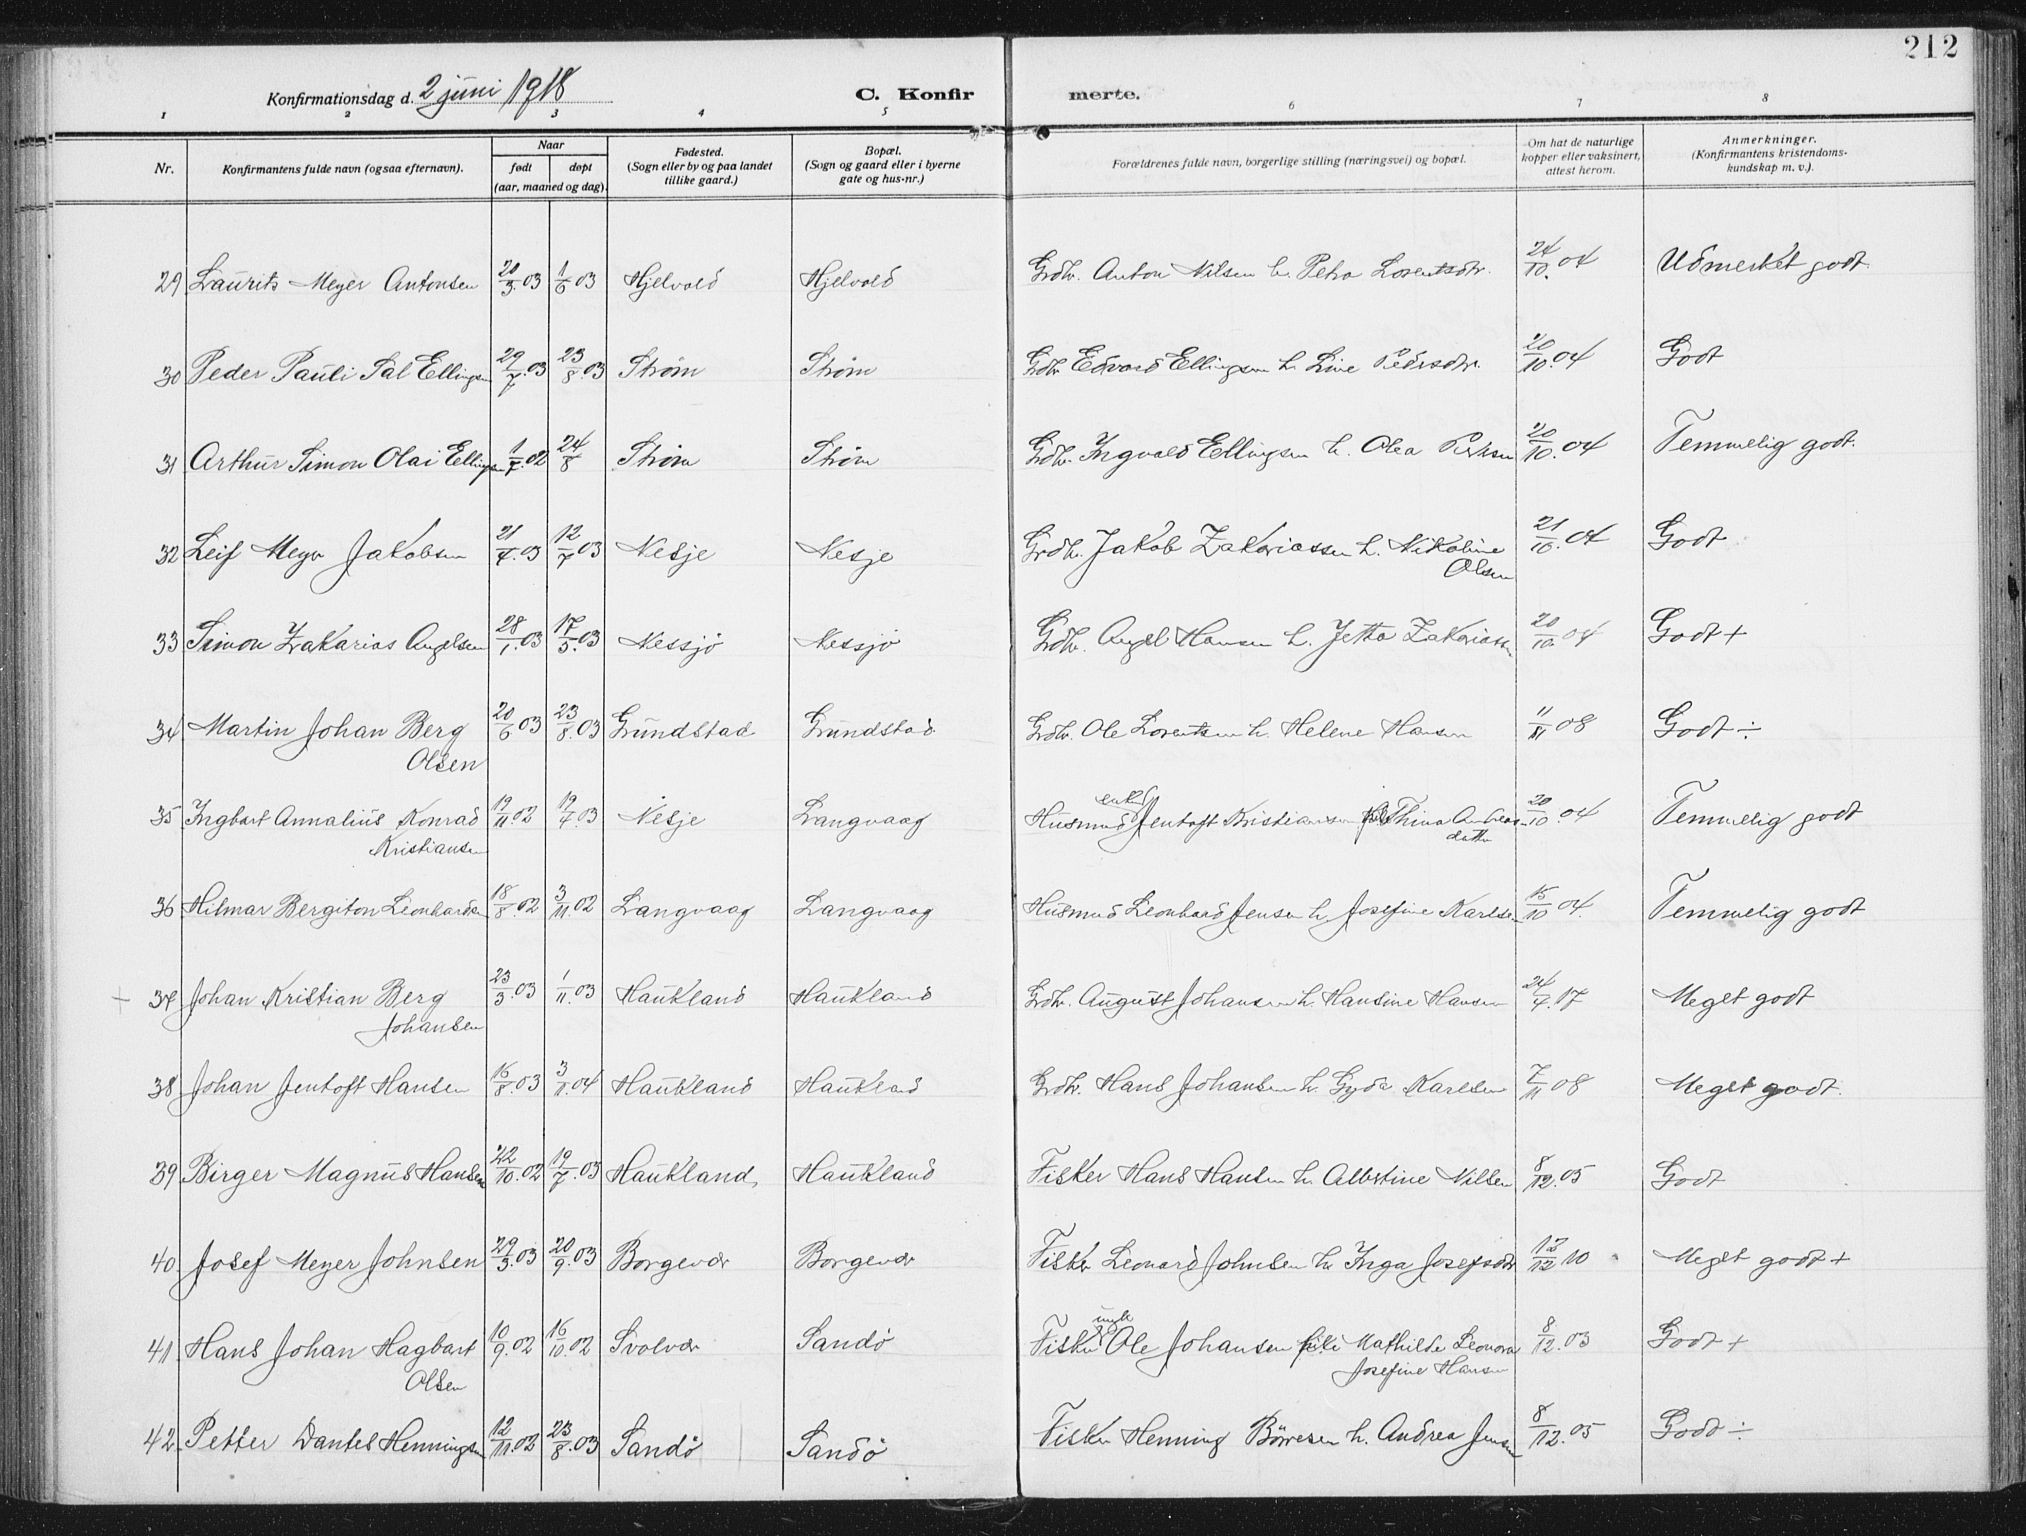 212
Konfirmationsdag d. 2 juni 1918
C. Konfirmerte.
1 2 3 4 5 6 7 8
Nr. Konfirmantens fulde navn (ogsaa efternavn). Naar født døpt (aar, maaned og dag). Fødested. (Sogn eller by og paa landet tillike gaard.) Bopæl. (Sogn og gaard eller i byerne gate og hus-nr.) Forældrenes fulde navn, borgerlige stilling (næringsvei) og bopæl. Om hat de naturlige kopper eller vaksinert, attest herom. Anmerkninger. (Konfirmantens kristendoms-kundskap m. v.).
29 Laurits Meyer Antonsen 20/3.03 1/6 03 Hjelvold Hjelvold Grdbr. Anton Nilsen h. Petra Lorentsdtr. 24/10.04 Udmerket godt
30 Peder Pauli Sal Ellingsen 29/7.03 23/8.03 Strøm Strøm Grdbr. Edvard Ellingsen h. Line Pedersdtr. 20/10.04 Godt
31 Arthur Simon Olai Ellingsen 1/7.02 24/8 Strøm Strøm Grdbr. Ingvald Ellingsen h. Olea 20/10.04 Temmelig godt.
32 Leif Meyer Jakobsen 21/4.03 12/7 03 Nesje Nesje Grdbr. Jakob Zakariassen h. Nikoline
Olsen 21/10.04 Godt
33 Simon Zakarias Angelsen 28/1.03 17/5.03 Nessjø Nessjø Grdbr. Angel Hansen h. Jetta Zakariassen 20/10.04 Godt +
34 Martin Johan Berg
Olsen 20/6 03 23/8.03 Grundstad Grundstad Grdbr. Ole Lorentsen h. Helene Hansen 11/11 08 Godt ÷
35 Ingbart Annalius Konrad
Kristiansen 19/11.02 19/4.03 Nesje Langvaag Husmand Jentoft Kristiansen Thina Andreas
datter 20/10.04 Temmelig godt
36 Hilmar Bergiton Leonhardsen 18/8.02 3/11.02 Langvaag Langvaag Husmand Leonhard Jensen h. Josefine Karlsen 15/10 04. Temmelig godt
37 Johan Kristian Berg
Johansen 23/3.03 1/11.03 Haukland Haukland Grdbr. August Johansen h. Hansine Hansen 24/4.17 Meget godt
38 Johan Jentoft Hansen 16/8.03 3/1.04 Haukland Haukland Grdbr. Hans Johansen h. Gyda Karlsen 7/11 08 Meget godt.
39 Birger Magnus Hansen 22/10.02 19/7.03 Haukland, Haukland Fisker Hans Hansen h. Albertine Nilsen 8/12.05 Godt
40 Josef Meyer Johnsen 29/3.03 20/9.03 Borgevær Borgevær Fisker Leonard Johnsen h. Inga Josefsdtr 12/12 10 Meget godt +
41 Hans Johan Hagbart
Olsen 10/9.02 16/10.02 Svolvær Sandø Fisker ungk. Ole Johansen pike Mathilde Leonora
Josefine Hansen 8/12.03 Godt +
42 Petter Daniel Henningsen 12/11.02 23/8.03 Sandø Sandø Fisker Henning Børresen h. Andrea Jensen 8/12.05 Godt ÷